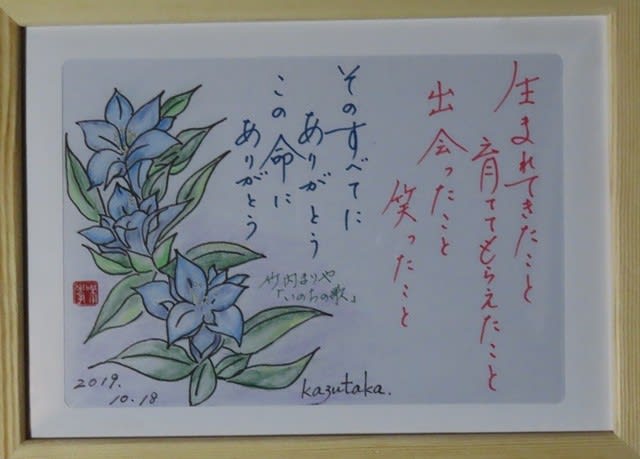 生まれてきたこと
育ててもらえたこと
出会ったこと
笑ったこと
そのすべてに
ありがとう
この命に
ありがとう
竹内まりや
「いのちの歌」
kazutaka.
2019.
10.18